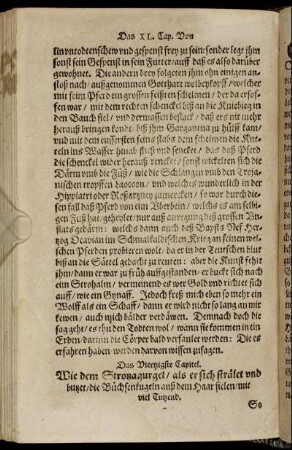 Das XL. Cap. Von
sein von todten schew vnd gespenst frey zu sein: sonder legt ihm
sonst sein Gespenst in sein Futter / auff daß es also darüber
gewohnet. Die andern drey folgeten ihm ohn einigen an-
stoß nach / außgenommen Gotthart wolbekopff / welcher
mit seim Pferd ein grossen feißten schelmen / der da ersof-
fen war / mit dem rechten schenckel biß an die Kniebieg in
den Bauch fiel / vnd dermassen bestack / daß er es nit mehr
herauß bringen konde, biß ihm Gargantua zu hülff kam /
vnd mit dem eussersten seins stabs dem schelmen die Kut-
teln ins Wasser hinab stieß vnd senckt / das daß Pferd
die schenckel wider herauß rencket / sonst wickelten sich die
Därm vmb die Füß / wie die Schlangen vmb den Troja-
nischen tropffen Laocoon / vnd welches wunderlich in der
Hippiatri oder Roßartzney zumercken / so war durch die-
sen fall daß Pferd von eim Vberbein / welchs es am selbi-
gen Fuß hat, geheylet / nur auß anregung deß grossen Vn-
flats gedärm: welchs dann auch deß Bapsts Nef Her-
tzog Octavian im Schmalkaldischen Krieg an seinen wel-
schen Pferden probieren wolt / da er in der Teutschen blut
biß an die Sättel gedacht zu reuten: aber die Kunst fehlt
ihm / dann er war zu früh auffgestanden / er buckt sich nach
eim Strohalm / vermeinend es wer Gold vnd richtet sich
auff / wie ein Gynaff. Jedoch freß mich eben so mehr ein
Wolff als ein Schaff / dann er wird nicht so lang an mir
kewen / auch mich bälder verdäwen. Demnach doch die
sag geht / es thu den Todten wol / wann sie kommen in ein
Erden / darinn die Cörper bald verfaulet werden: Die es
erfahren haben werden darvon wissen zusagen.
Das Viertzigste Capitel.
Wie dem Strotzagurgel / als er sich strälet vnd
butzet / die Büchsenkugeln auß dem Haar fielen / mit
viel Tutzend.
So